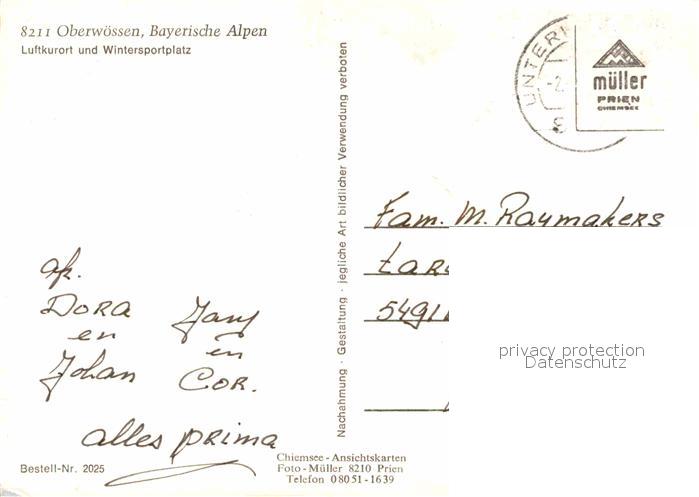 8211 Oberwössen, Bayerische Alpen
Luftkurort und Wintersportplatz
UNTER
-2.
8
müller
PRIEN
CHIEMSEE
Nachahmung · Gestaltung · jegliche Art bildlicher Verwendung verboten
Fam. M. Raymakers
5491
privacy protection
Datenschutz
afz.
DORA
en
Johan
Jany
en
COR.
alles prima
Bestell-Nr. 2025
Chiemsee - Ansichtskarten
Foto - Müller 8210 Prien
Telefon 08051 - 1639